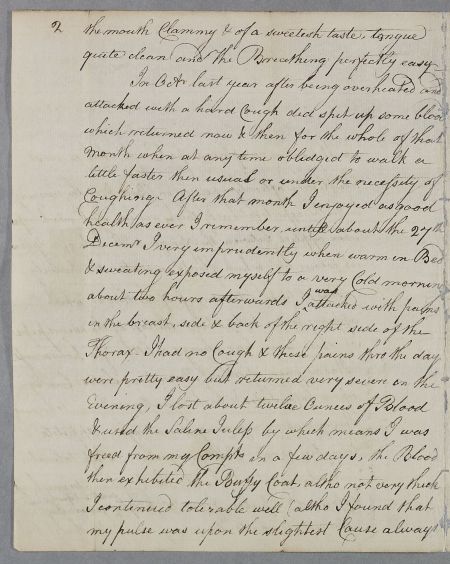 2 the mouth Clammy & of a sweetish taste, tongue
quite clean and the Breathing perfectly easy
In Octr last year after being overheated and
attacked with a hard Cough did spit up some blood
which returned now & then for the whole of that
Month when at any time oblidged to walk a
little faster then usual or under the necessity of
Coughing. After that month I enjoyed as good
health as ever I remember, untill about the 27th
Decemr I very imprudently when warm in Bed
& sweating exposed myself to a very Cold morning
about two hours afterwards I was attacked with pains
in the breast, side & back of the right side of the
Thorax - I had no Cough & these pains thro the day
were pretty easy but returned very severe in the
Evening, I lost about twelve Ounces of Blood
& used the Saline Julep by which means I was
freed from my Compts in a few days, the Blood
then exhibited the Buffy Coat, altho not very thick
I continued tolerable well (altho I found that
my pulse was upon the slightest Cause always